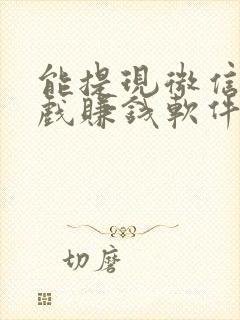 能提現微信
戲賺錢軟件
切磨